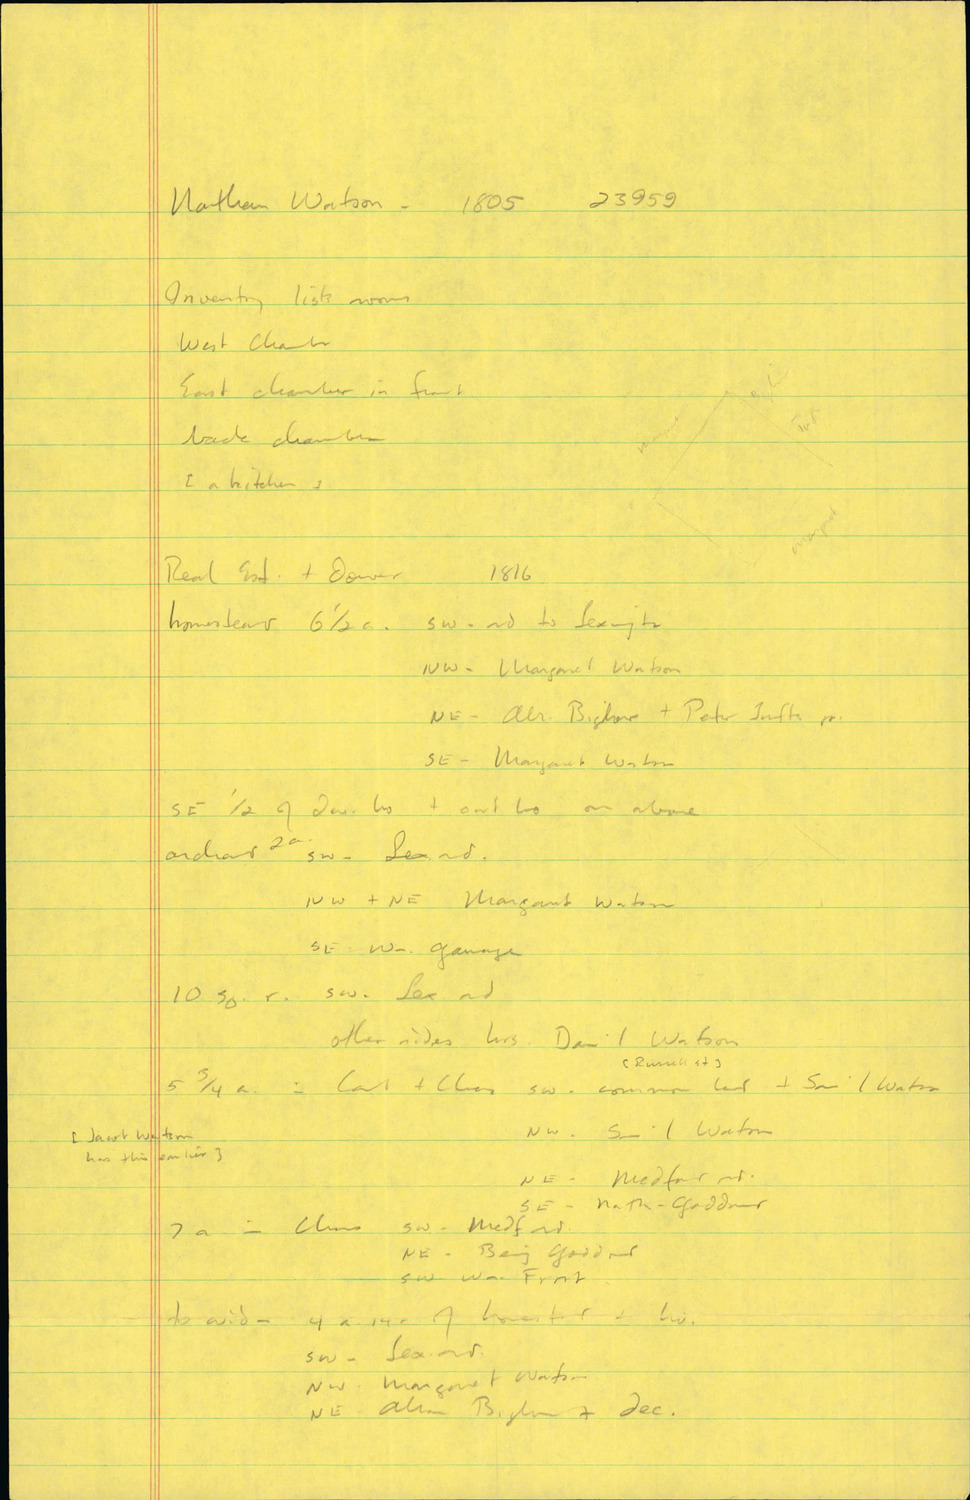 Nathan Watson - 1805 23959
Inventory lists rooms
West Chamber
East chamber in front
back chamber
[ a kitchen ]
Real Est. + Dower 1816
homestead 6 1/2 a. SW - rd to Lexington
NW - Margaret Watson
NE - Abr. Bigelow + Peter Tufts jr.
SE - Margaret Watson
SE 1/2 of dw. ho + out ho on above
orchard 2 a. SW - Lex rd.
NW + NE Margaret Watson
SE - Wm. Gamage
10 sq. r. SW. Lex rd
other sides hrs. Dan'l Watson
[Russell st]
5 3/4 a. in Camb + Chas SW. common land + Sam'l Watson
[ Jacob Watson
has this earlier ]
NW. Sam'l Watson
NE - Medford rd.
SE - Nath - Goddard
7 a in Chas SW - Medf rd.
NE - Benj Goddard
SW Wm Frost
to wid - 4 a 14 r of homestd + ho.
SW - Lex rd.
NW. Margaret Watson
NE Abram Bigelow + dec.
Margaret